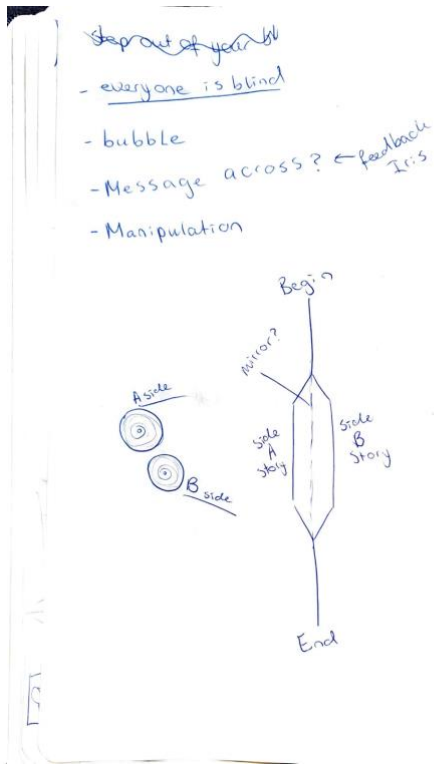 step out of your bl
- everyone is blind
- bubble
- Message across? ← feedback
Iris
- Manipulation
Begin
mirror?
A side
side
A
story
side
B
story
B side
End